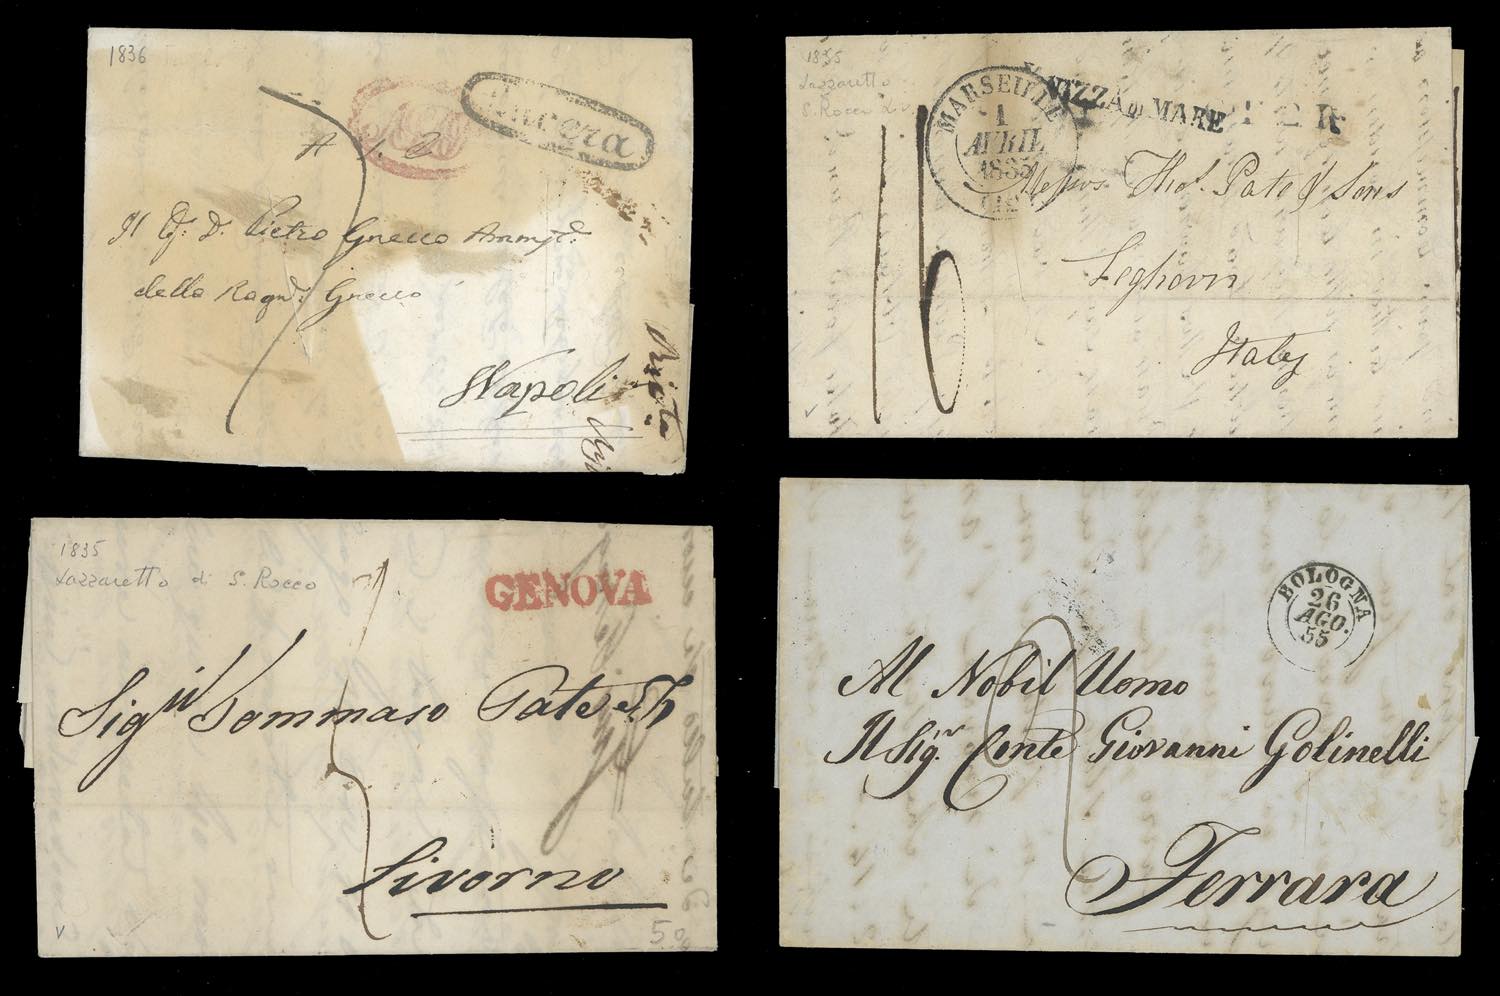 1836
Nocera
A S. E.
Il Sig. D. Pietro Grecco Ammte.
della Ragne. Grecco
Napoli
1835
Lazzaretto
S. Rocco Liv
MARSEILLE
1
AVRIL
1835
(12)
NIZZA DI MARE
T S R
16
Messrs Thos. Pate & Sons
Leghorn
Italy
V
1835
Lazzaretto di S. Rocco
GENOVA
Sigri Tommaso Pate e Fi
Livorno
V
50
BOLOGNA
26
AGO.
55
Al Nobil Uomo
Il Sigr. Conte Giovanni Golinelli
Ferrara